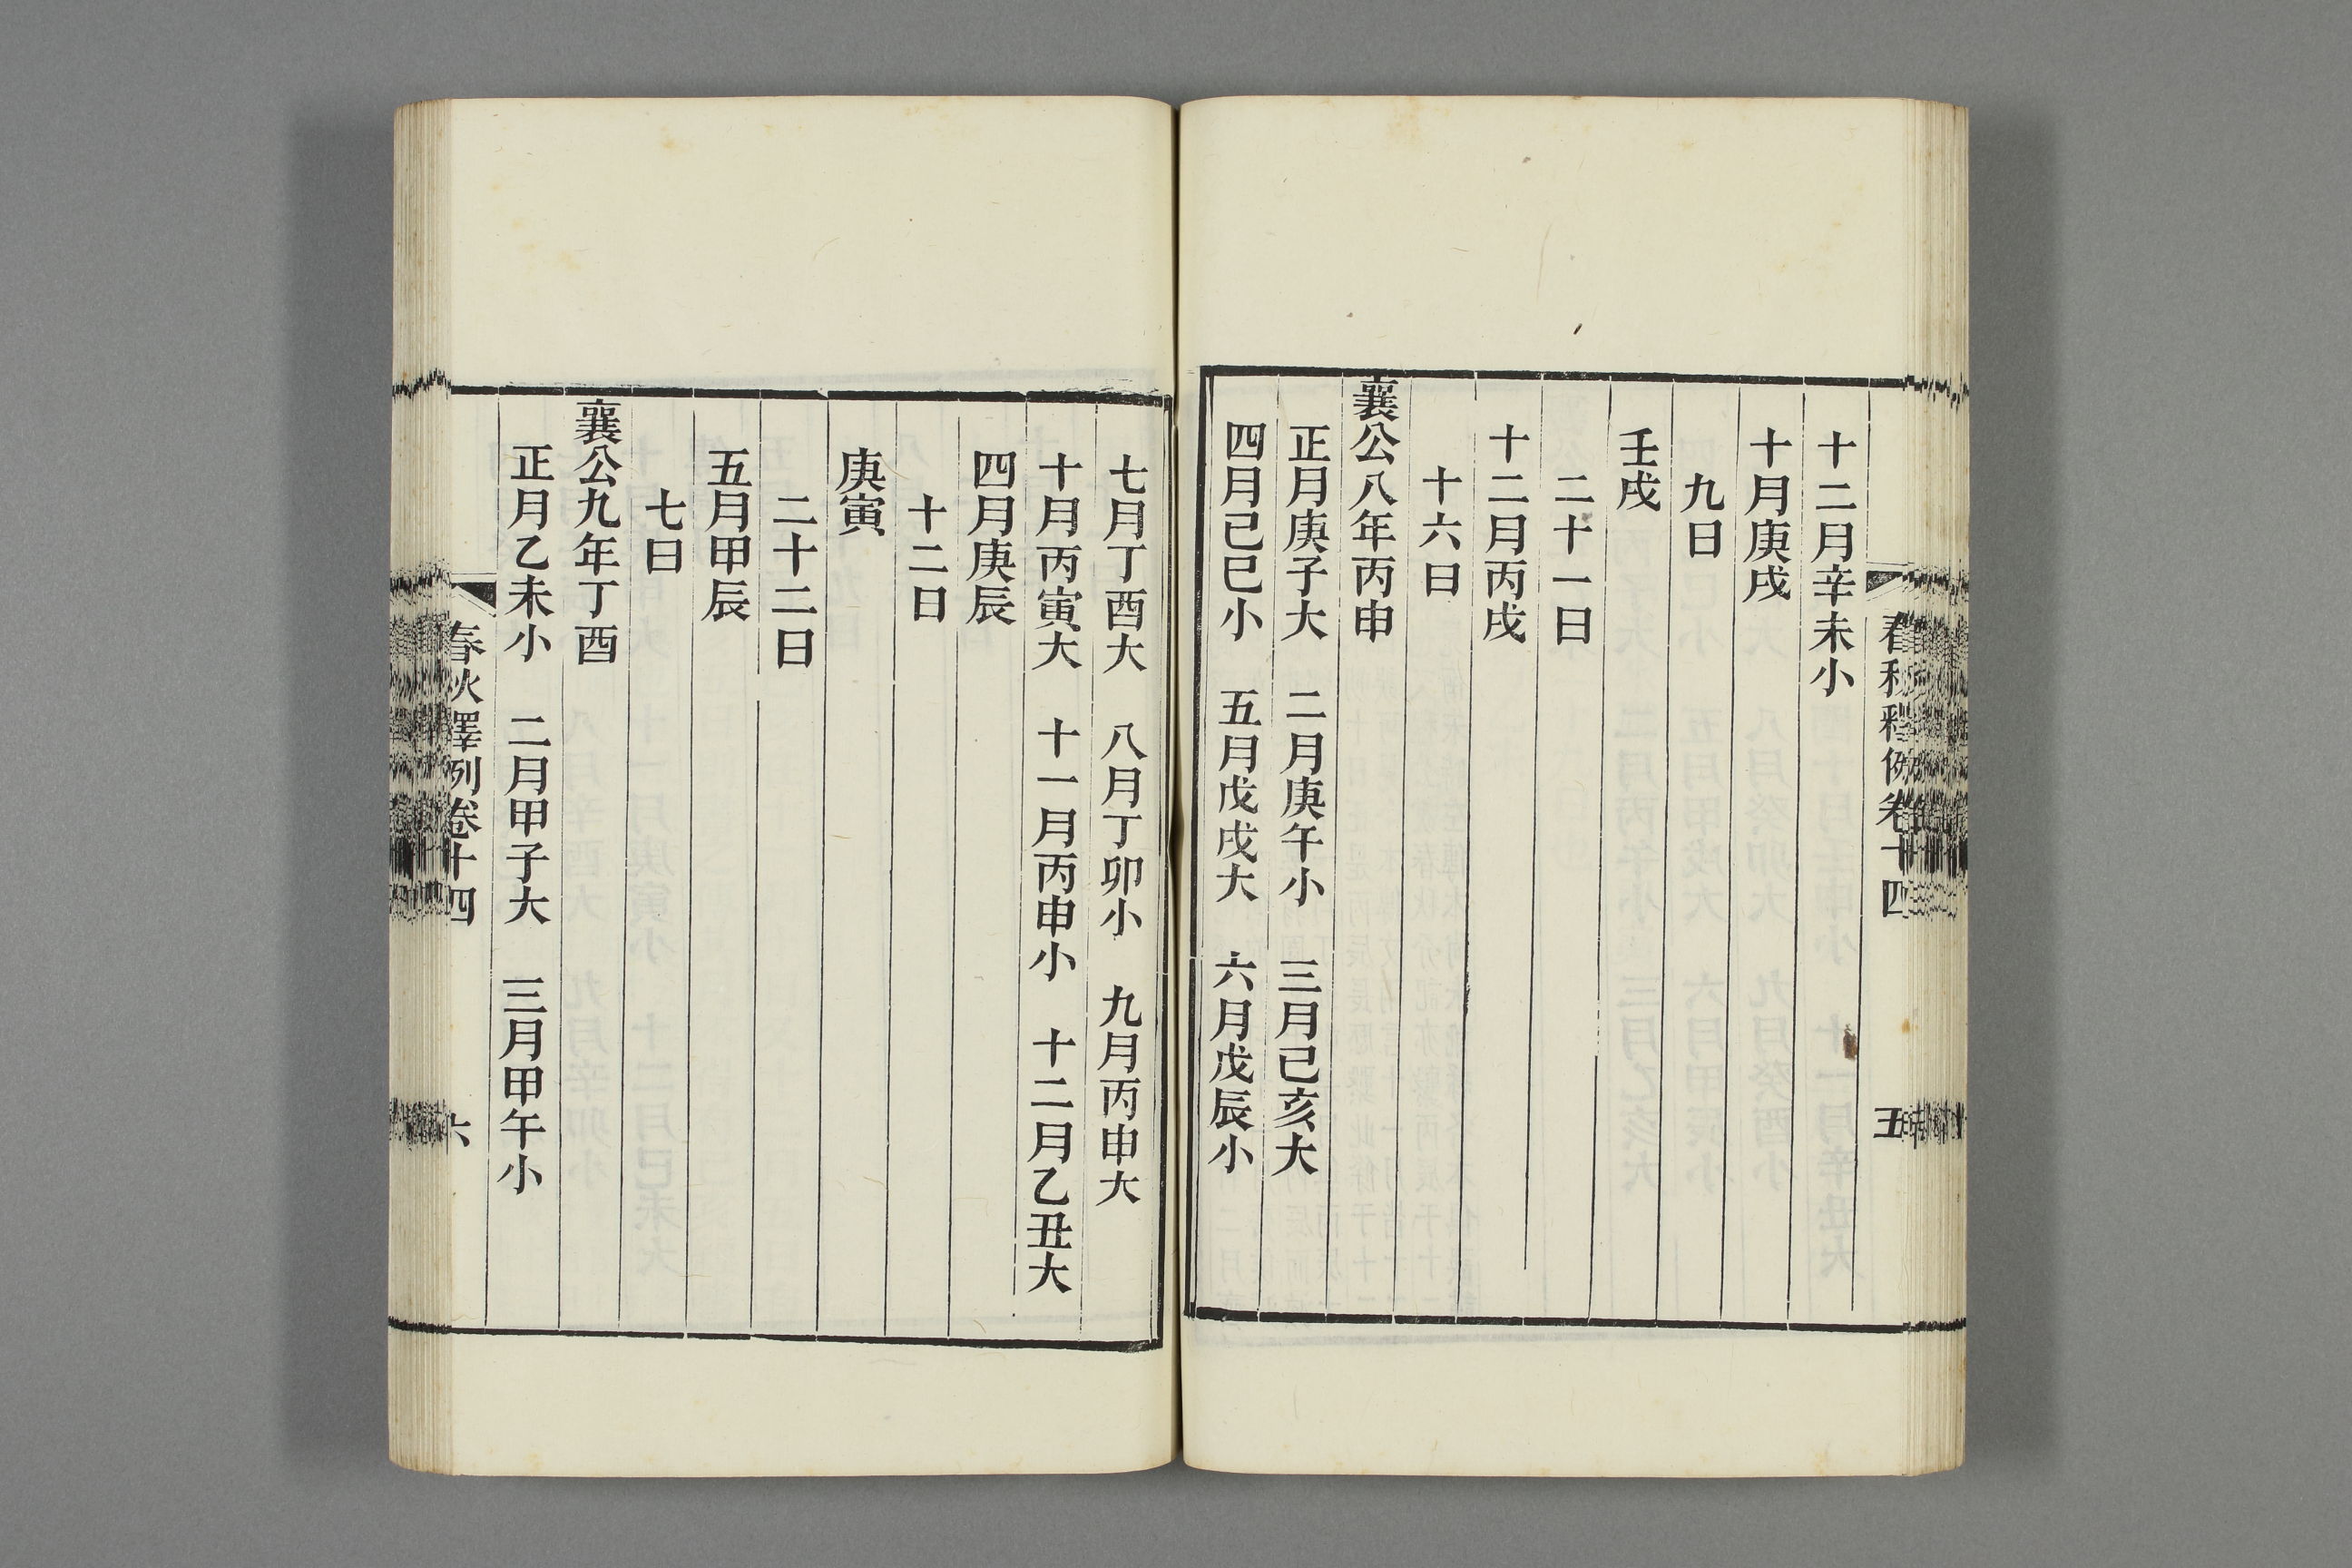 春秋釋例卷十四
五
十二月辛未小
十月庚戌
九日
壬戌
二十一日
十二月丙戌
十六日
襄公八年丙申
正月庚子大　二月庚午小　三月己亥大
四月己巳小　五月戊戌大　六月戊辰小
七月丁酉大　八月丁卯小　九月丙申大
十月丙寅大　十一月丙申小　十二月乙丑大
四月庚辰
十二日
庚寅
二十二日
五月甲辰
七日
襄公九年丁酉
正月乙未小　二月甲子大　三月甲午小
春秋釋例卷十四
六